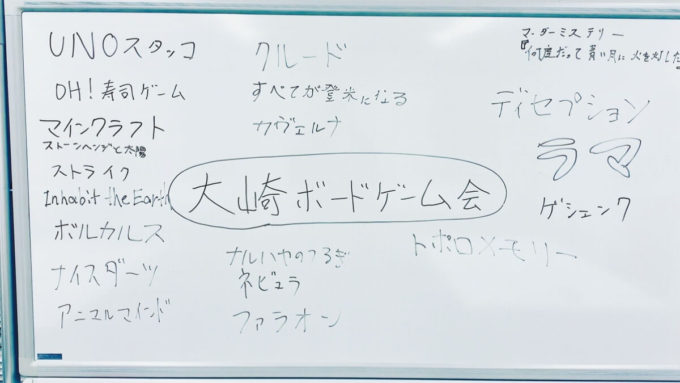 UNOスタッコ
OH!寿司ゲーム
マインクラフト
ストーンヘンジと太陽
ストライク
Inhabit the Earth
ボルカルス
ナイスダーツ
アニマルマインド
クルード
すべてが登米になる
カヴェルナ
大崎ボードゲーム会
ナルハヤのつるぎ
ネビュラ
ファラオン
マーダーミステリー
『何度だって青い月に火を灯した』
ディセプション
ラマ
ゲシェンク
トポロメモリー